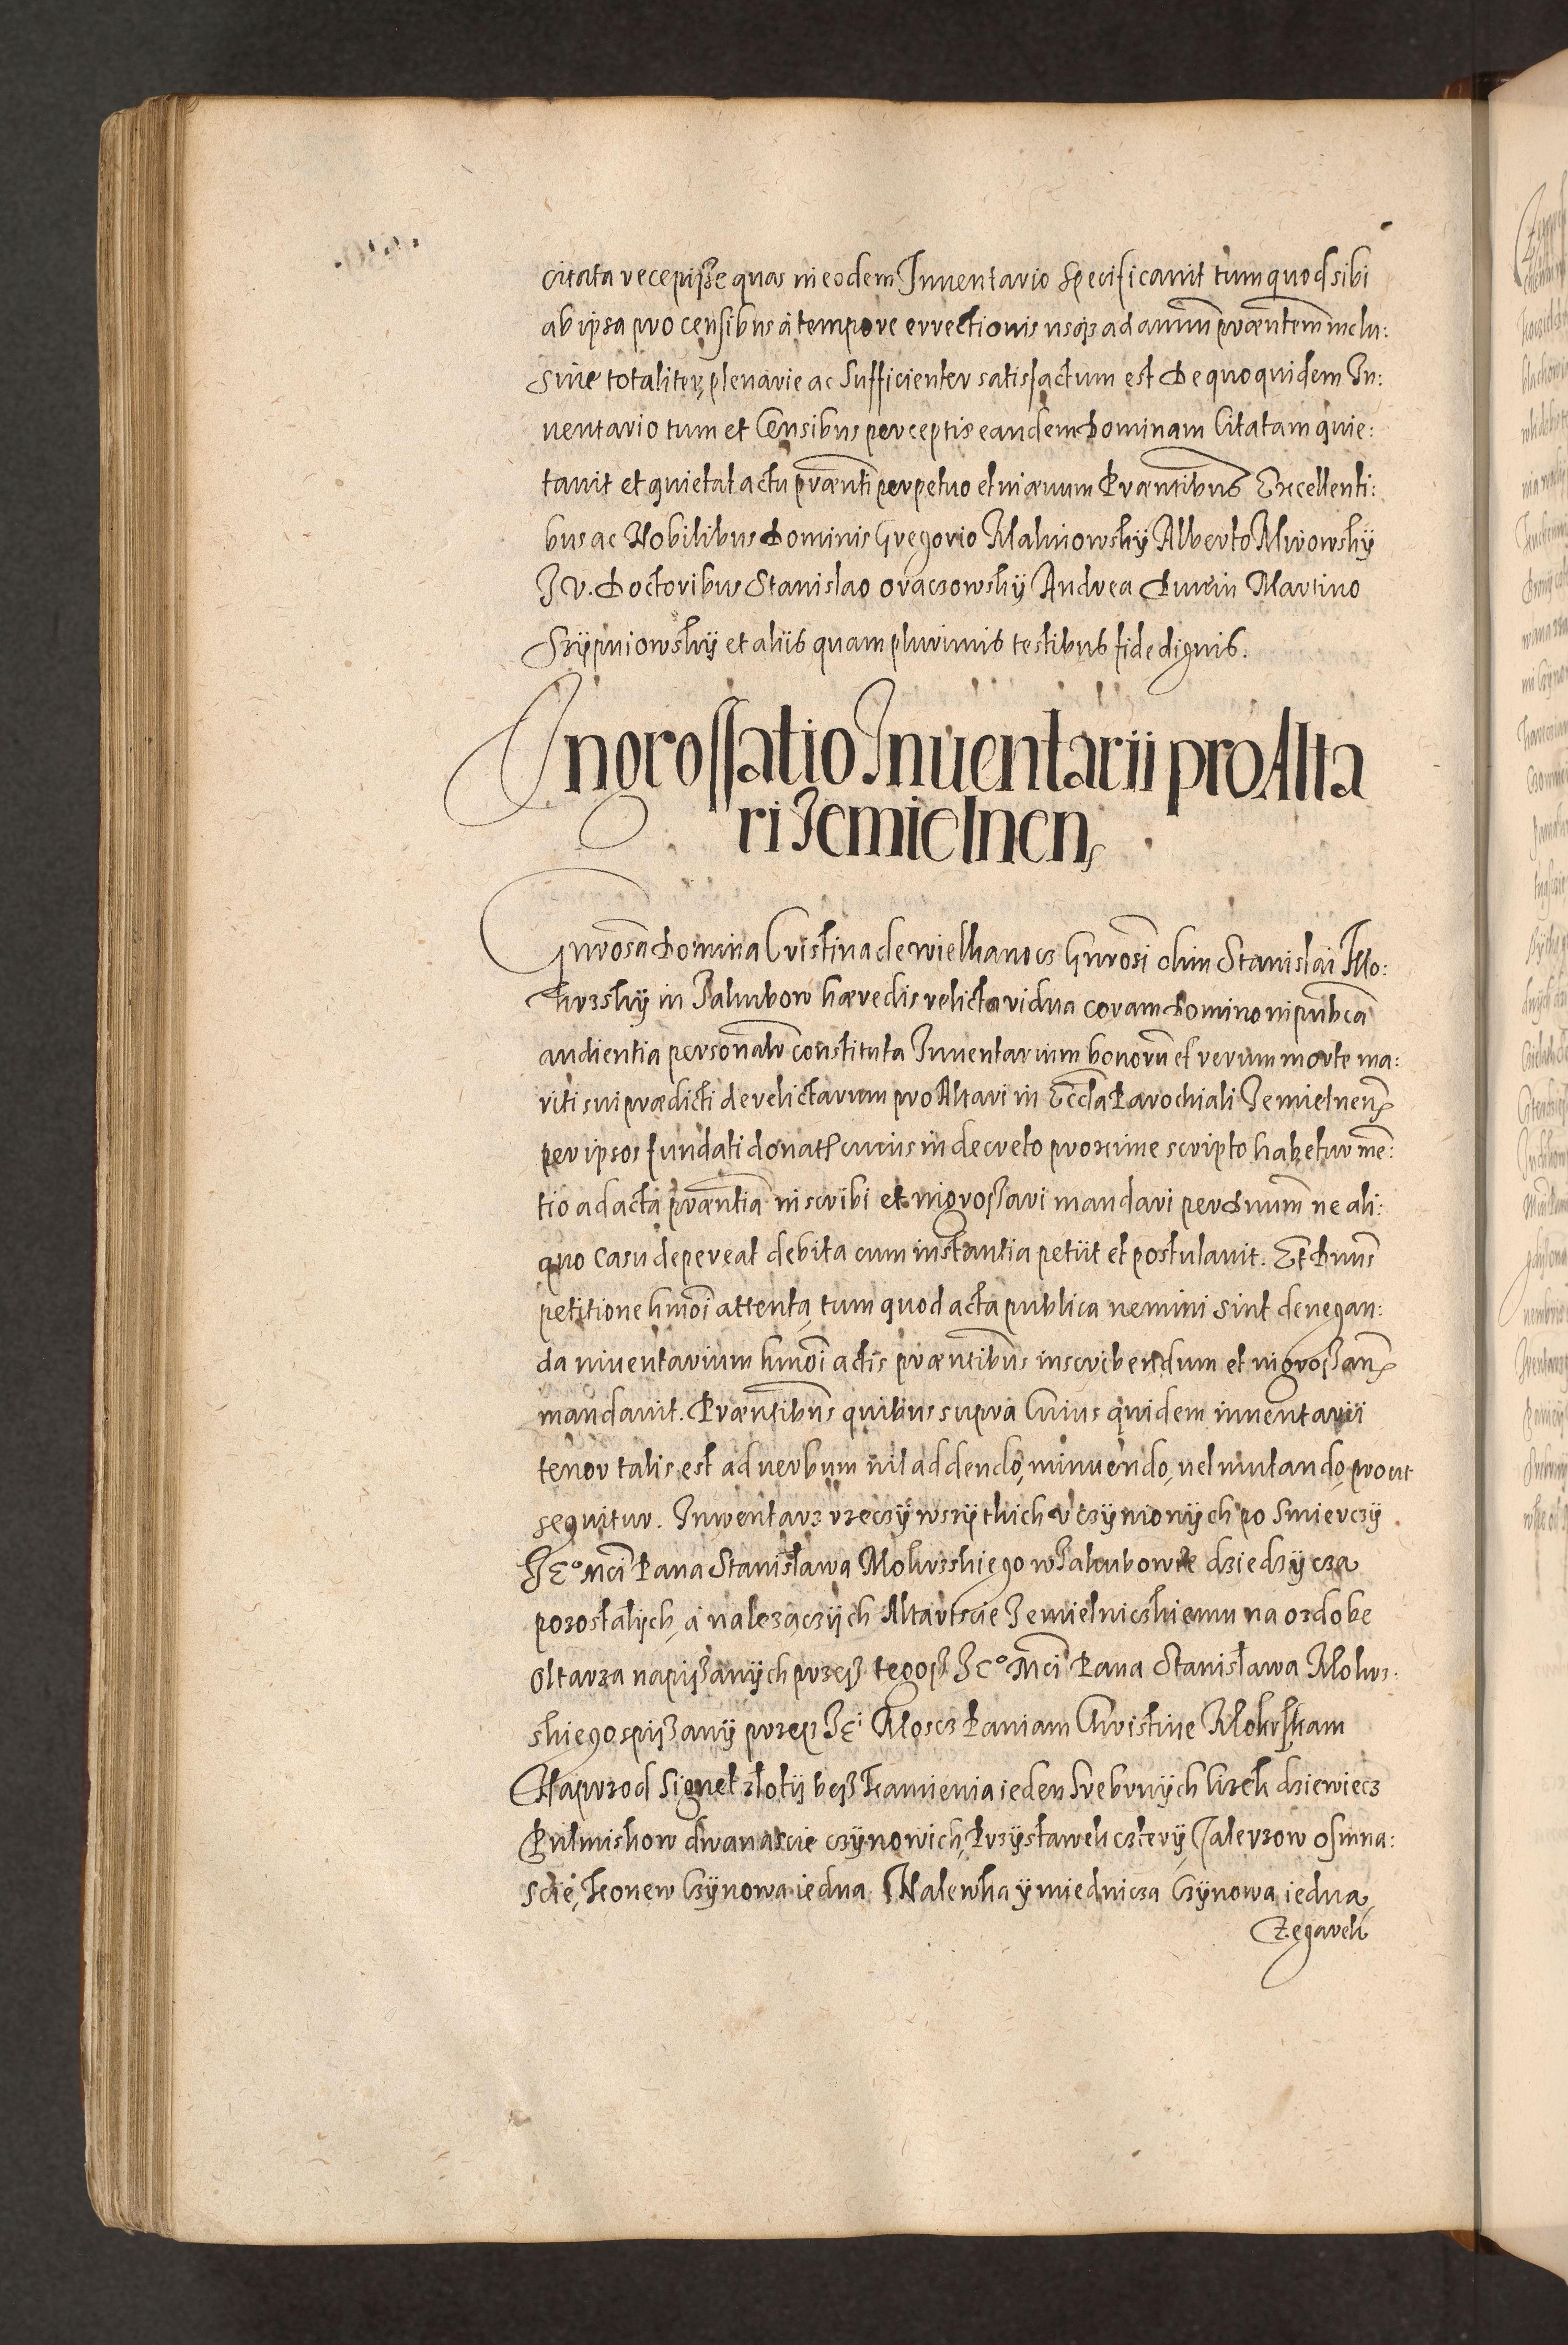 citata recepisse quas in eodem Inuentario specificauit tum quod sibi
ab ipsa pro censibus à tempore errectionis usq3 ad annum præntem inclu:
siue totaliter, plenarie ac sufficienter satisfactum est De quo quidem In:
uentario tum et Censibus perceptis eandem Dominam Citatam quie:
tauit et quietat actu prænti perpetuo et in æuum Præntibus Excellenti:
bus ac Nobilibus Dominis Gregorio Malinowsky Alberto Mirowsky
J V. Doctoribus Stanislao oraczowsky Andrea Martino
Szypniowsky et aliis quam plurimis testibus fide dignis.
Ingrossatio Inuentarii pro Alta
ri Jemielnen
Gnrosa Domina Cristina de wielkanocz Gnrosi olim Stanislai Mo:
krzsky in Jakubow hæredis relicta vidua coram Domino in publica
audientia personalr constituta Inuentarium bonorum et rerum morte ma:
riti sui prædicti derelictarum pro Altari in Eccla Parochiali Jemielnen
per ipsos fundati donat cuius in decreto proxime scripto habetur men:
tio ad acta præntia inscribi et ingrossari mandari per Dnum ne ali:
quo casu depereat debita cum instantia petiit et postulauit. Et Dnus
petitione hmoi attenta, tum quod acta publica nemini sint denegan:
da inuentarium hmoi actis præntibus inscribendum et ingrossan
mandauit. Præntibus quibus supra Cuius quidem inuentarii
tenor talis est ad uerbum nil addendo, minuendo, uel mutando, prout
sequitur. Inwentarz rzeczÿ wszÿtkich vczÿnionÿch po smierczÿ
JEº Mci Pana Stanisława Mokrzskiego w Jakubowie dziedzÿcza
pozostałÿch, á należączÿch Altarzscie Jemielniczkiemu na ozdobe
Oltarza napißanÿch przeß tegoß Jeº Mci Pana Stanisława Mokrz:
skiego spißanÿ przez JEi Moscz Paniam Christine Mokrskam
Naprzod Signet złotÿ beß kamienia ieden srebrnÿch łizek dziewiecz
Pułmiskow dwanascie czÿnowich, Przÿstawek czterÿ, Talerzow osmna:
scie, Konew Czÿnowa iedna, Nalewka ÿ miednicza Czÿnowa iedna,
Zegarek